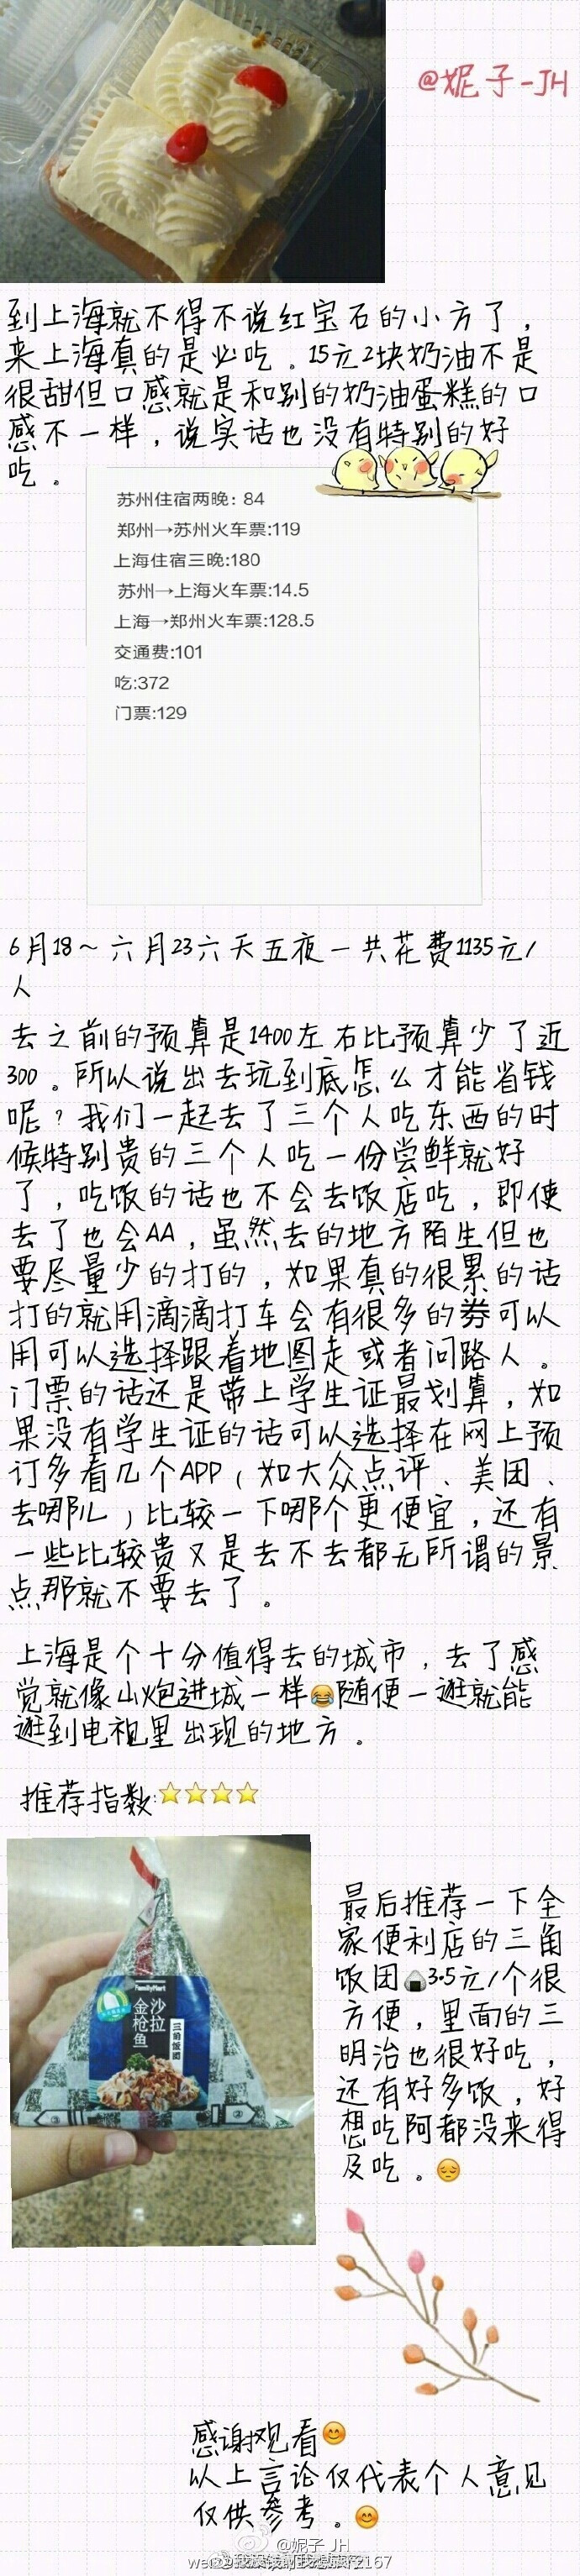 @妮子-JH
到上海就不得不说红宝石的小方了，
来上海真的是必吃。15元2块奶油不是
很甜但口感就是和别的奶油蛋糕的口
感不一样，说实话也没有特别的好
吃。
苏州住宿两晚：84
郑州→苏州火车票:119
上海住宿三晚:180
苏州→上海火车票:14.5
上海→郑州火车票:128.5
交通费:101
吃:372
门票:129
6月18～六月23六天五夜一共花费1135元/
人
去之前的预算是1400左右比预算少了近
300。所以说出去玩到底怎么才能省钱
呢？我们一起去了三个人吃东西的时
候特别贵的三个人吃一份尝鲜就好
了，吃饭的话也不会去饭店吃，即使
去了也会AA，虽然去的地方陌生但也
要尽量少的打的，如果真的很累的话
打的就用滴滴打车会有很多的券可以
用可以选择跟着地图走或者问路人。
门票的话还是带上学生证最划算，如
果没有学生证的话可以选择在网上预
订多看几个APP（如大众点评、美团、
去哪儿）比较一下哪个更便宜，还有
一些比较贵又是去不去都无所谓的景
点那就不要去了。
上海是个十分值得去的城市，去了感
觉就像山炮进城一样😂随便一逛就能
逛到电视里出现的地方。
推荐指数:⭐⭐⭐⭐
最后推荐一下全
家便利店的三角
饭团🍙3.5元/个很
方便，里面的三
明治也很好吃，
还有好多饭，好
想吃阿都没来得
及吃。😔
FamilyMart
沙拉
金枪鱼
三角饭团
感谢观看😊
以上言论仅代表个人意见
仅供参考。😊
@妮子_JH